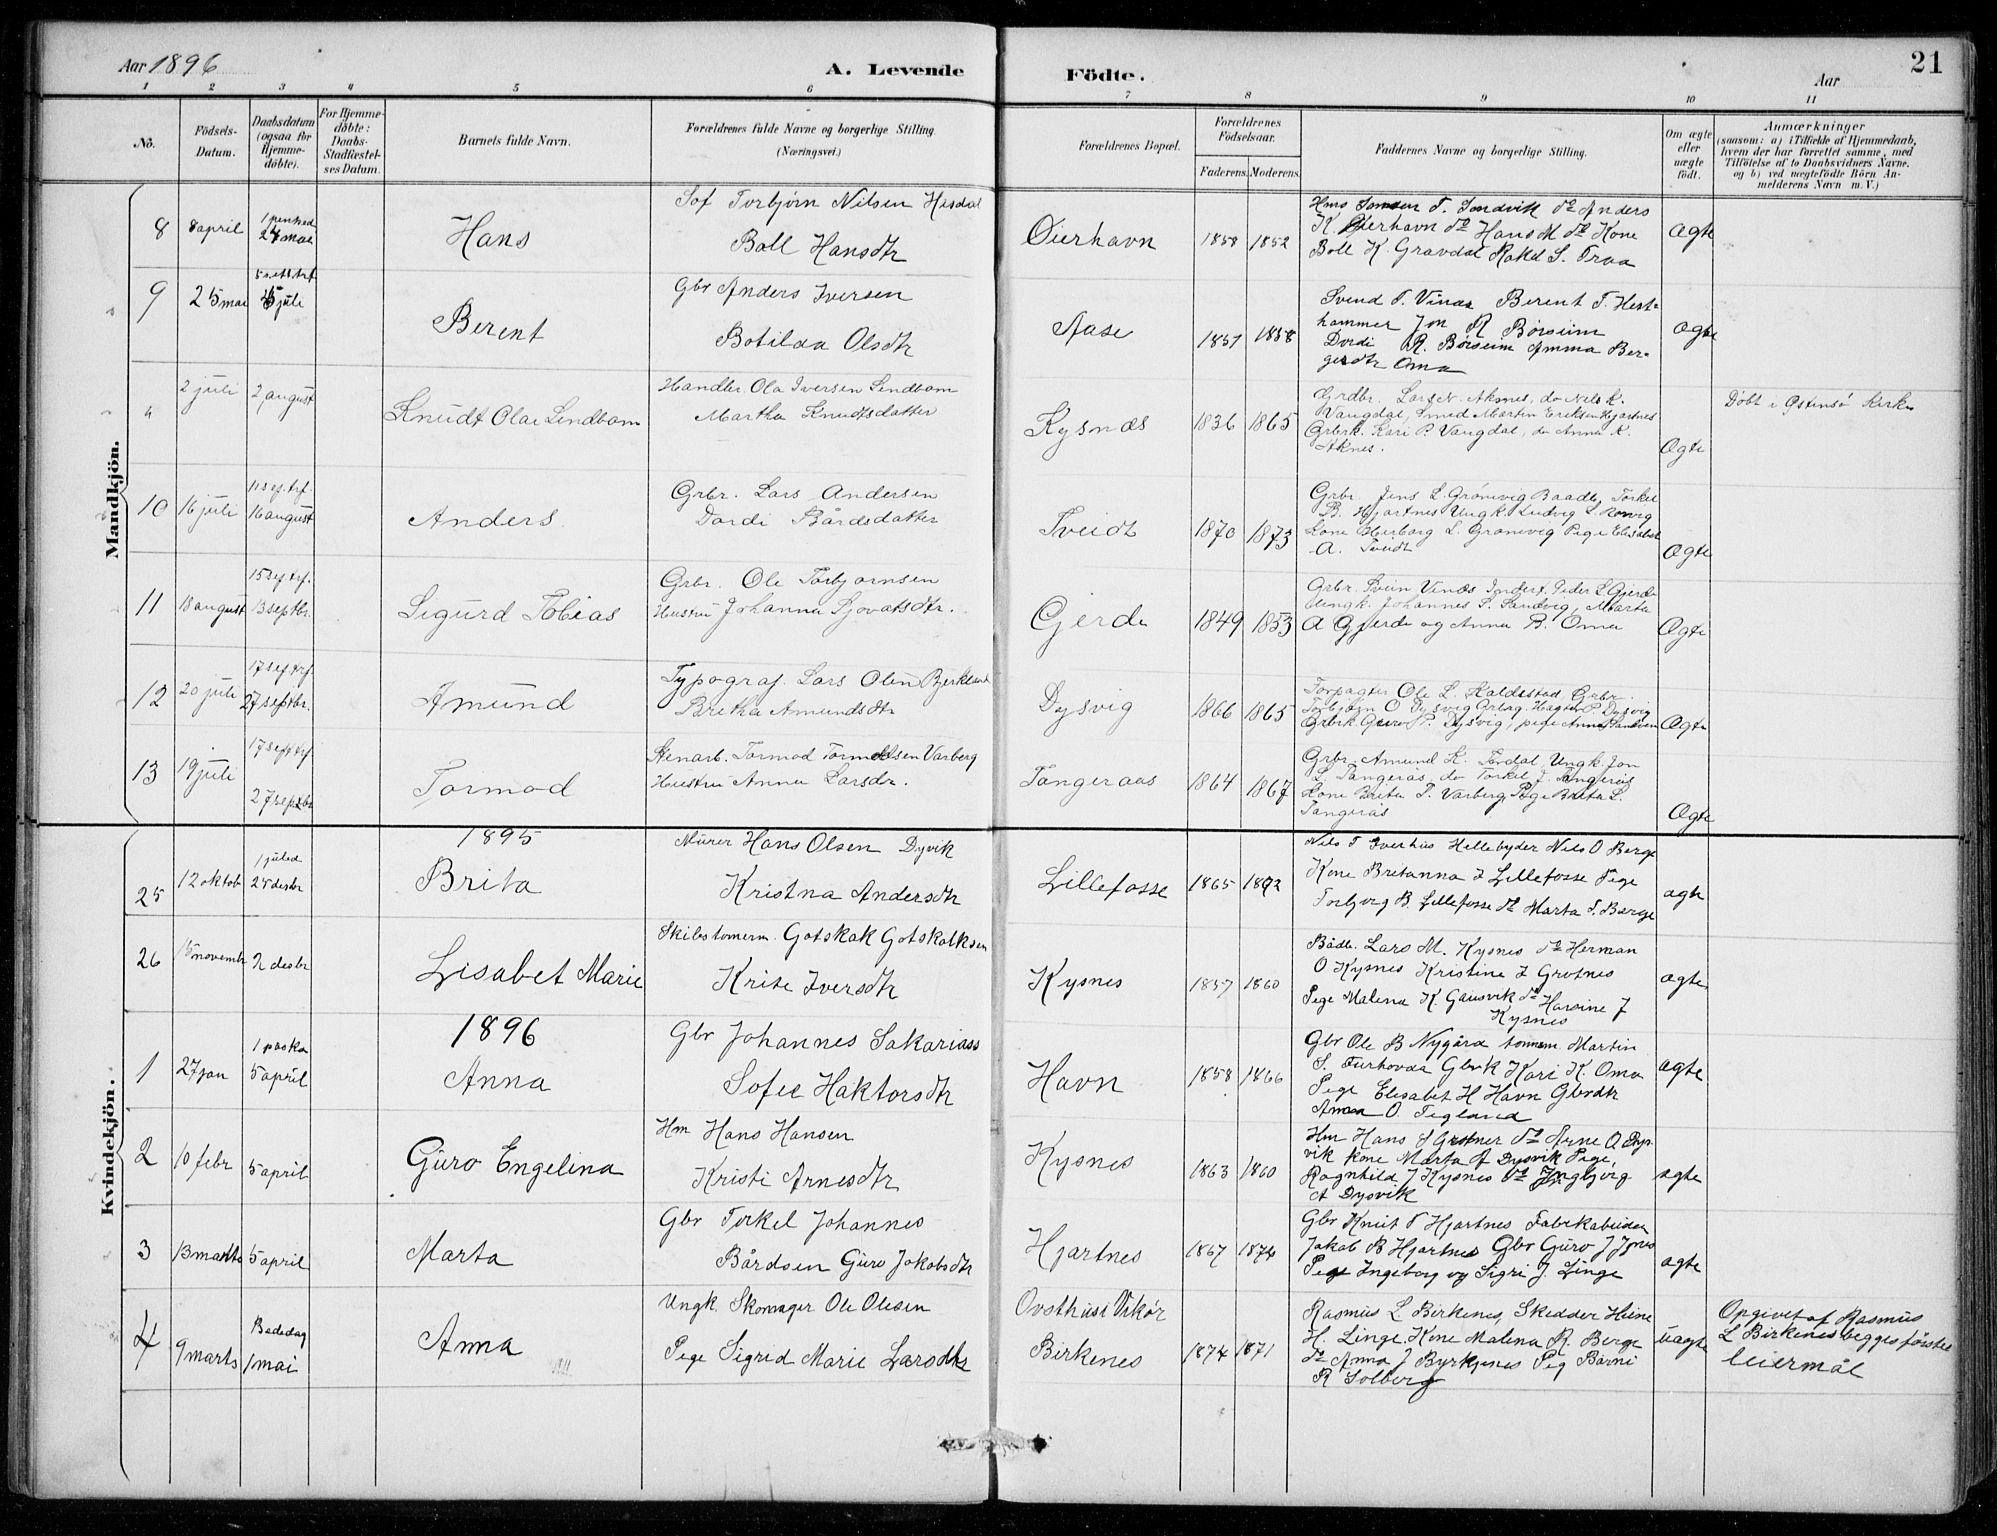 Aar 1896
A. Levende Födte.
Aar
21
1 2 3 4 5 6 7 8 9 10 11
No.
Födsels-Datum.
Daabsdatum (ogsaa for Hjemme-döbte).
For Hjemme-döbte: Daabs-Stadfæstel-ses Datum.
Barnets fulde Navn.
Forældrenes fulde Navne og borgerlige Stilling. (Næringsvei.)
Forældrenes Bopæl.
Forældrenes Födselsaar.
Faderens. Moderens.
Faddernes Navne og borgerlige Stilling.
Om ægte eller uægte födt.
Anmærkninger
(saasom: a) i Tilfælde af Hjemmedaab, hvem der har forrettet samme, med Tilföielse af to Daabsvidners Navne, og b) ved uægtefödte Börn An-melderens Navn m. V.)
Mandkjön.
8 8 april 24 mai Hans
Torbjørn Nilsen Hisdal
Boll Hansdtr
Øierhavn 1858 1852
K. Øierhavn do Hans M do Kone
Boll K. Gravdal Rakel S. Traa
Ægte
9 25 mai juli Berent
Gbr Anders Iversen
Botilda Olsdtr
Aase 1857 1858
Svend T. Vinæs Berent T. Hest-
hammer Jon R Børseim
Dordi R. Børseim Amma Ber-
gesdtr Oma
Ægte
2 juli 2 august Knudt Olai Lendbom
Handler. Ola Iversen Lendbom
Martha Knudtsdatter
Kysnæs 1836 1865
Grdbr. Lars N. Aksnes, do Nils K.
Vangdal, Smed Martin Eriksen Hjartnes
Grbrk. Kari P. Vangdal, do Anna K.
Aknes.
Ægte
Døbt i Østensø Kirke
10 16 juli 16 august Anders
Grbr. Lars Andersen
Dordi Bårdsdatter
Tveidt 1870 1873
Grbr. Jens L. Grønsvig Baadb, Torkel
B. Hjartnes Ungk. Ludvig L.
Kone Herborg L. Gronsvig Pige Elisabet
A. Tveidt
Ægte
11 18 august 13 septbr. Sigurd Tobias
Grbr. Ole Torbjørnsen
Hustru Johanna Sjovatsdtr.
Gjerde 1849 1853
Grbr. Svein Vinæs Inderf. Peder L Gjerde
Ungk. Johannes S. Sandvig, Marta
A Gjerde og Anna B. Oma
Ægte
12 20 juli 27 septbr. Amund
Typograf. Lars Olsen Bjerkland
Britha Amundsdtr
Dysvig 1866 1865
Forpagter Ole L. Haldestad Grbr.
Torbjørn O Dysvig Grbrg. P. Dysvig
Grbrk Guro P. Dysvig, pige Anna
Ægte
13 19 juli 17 sept trf. 27 septbr Tormod
Stenarb. Tormod Tormodsen Varberg
Hustru Anna Larsdr.
Tangeraas 1864 1867
Grbr. Amund K. Ungk. Jon
L. Tangerås, do Torkel J. Tangerås
Kone Brita T. Varberg Pige Brita L.
Tangerås
Ægte
Kvindekjön.
1895
25 12 oktob 1 juled 25 desbr Brita
Mürer Hans Olsen Dyvik
Kristna Andersdtr
Lillefosse 1865 1892
Nils T Hellebyder Nils O Berge
Kone Britanna Z Lillefosse Pige
Torbjorg B. Lillefosse do Marta T. Berge
ægte
26 15 novembr 2 desbr Lisabet Marie
Skibstømerm. Gotskak Gotskalksen
Krite Iversdtr
Kysnes 1857 1860
Bådb. Lars M. Kysnes do Herman
O Kysnes Kristine Z Grotnes
Pege Malena K Gausvik do J
Kysnes
ægte
1896
1 27 jan 1 paska 5 april Anna
Gbr Johannes Sakariass
Sofie Haktorsdtr
Havn 1858 1866
Gbr Ole B Nygård tømrm. Martin
S. Furhovda Gbrk Kari K. Oma
Pege Elisabet H Havn Gbrdtr
Anna O. Tegland
ægte
2 10 febr 5 april Guro Engelina
Hm Hans Hansen
Kristi Arnesdtr
Kysnes 1863 1860
Hm Hans S do Arne O Dys-
vik Kone Marta A Dysvik Pige,
Ragnhild J Kysnes do Ingbjørg
A Dysvik
ægte
3 13 marts 5 april Marta
Gbr Torkel Johannes
Bårdsen Guro Jakobsdtr
Hjartnes 1867 1874
Gbr Knut T Hjartnes Fabrikabeider
Jakob B Hjartnes Gbr Guro J
Pege Ingeborg og Sigri J. Linge
ægte
4 9 marts Bededag 1 mai Anna
Ungk. Skomager Ole Olesen
Pege Sigrid Marie Larsdtr
Ovsthusi Vikør
Birkenes 1874 1871
Rasmus L Birkenes, Skredder Heine
H. Linge, Kone Malena R. Berge
do Anna J Byrkjenes Peg Bårni
R Solberg
uægte
Opgivet af Rasmus
L Birkenes begges første
leiermål